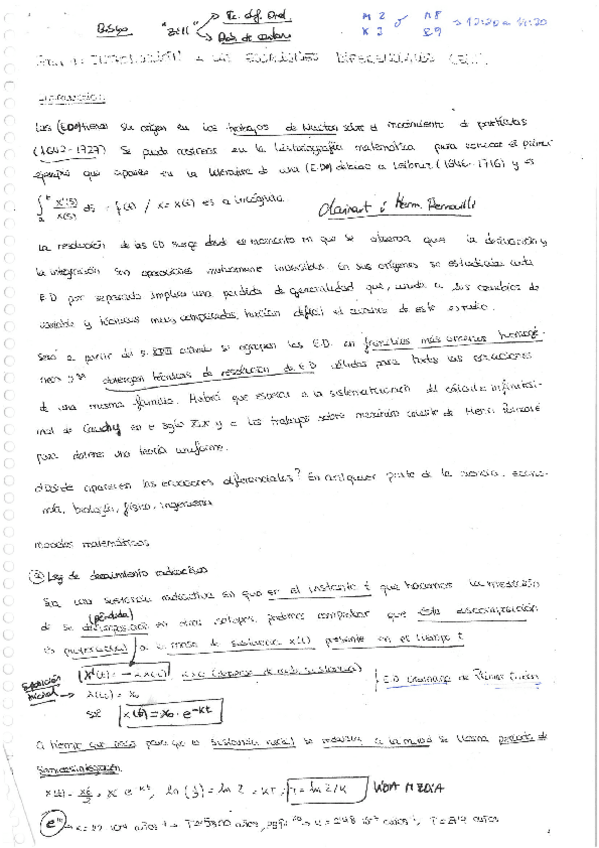 "Zill" → Ec. dif. Ord.
M 2 X 3 ó M 8 → 12:20 a 14:20
Las (ED) tienen su origen en los trabajos de Newton sobre el movimiento de partículas
(1642-1727) Se puede rastrear en la historiografía matemática para conocer el primer
ejemplo que aparece en la literatura de una (ED) debido a Leibniz (1646-1716) y es
x = x(t) es la incógnita. Clairaut y Bernoulli
La resolución de las ED surge desde el momento en que se observa que la derivación y
la integración son operaciones mutuamente inversibles. En sus orígenes se estudiaba cada
E.D por separado implica una pérdida de generalidad que, unida a los cambios de
variable y técnicas muy complicadas, hacían difícil el avance de este estudio.
Será a partir del s. XVIII cuando se agrupan las E.D. en familias más o menos homogé-
neas y se obtengan técnicas de resolución de E.D válidas para todas las ecuaciones
de una misma familia. Habrá que esperar a la sistematización del cálculo infinitesi-
mal de Cauchy en el siglo XIX y a los trabajos sobre mecánica celeste de Henri Poincaré
para obtener una teoría uniforme.
¿Dónde aparecen las ecuaciones diferenciales? En cualquier parte de la ciencia, econo-
mía, biología, física, ingeniería
modelos matemáticos
① Ley de decaimiento radioactivo
Sea una sustancia radioactiva en que en el instante t que hacemos la medición
(pérdida)
de su descomposición en otros isótopos, podemos comprobar que esta descomposición
es proporcional a la masa de sustancia x(t) presente en el tiempo t
x'(t) = -k x(t) (depende de cada sustancia)
condición inicial → x(t₀) = x₀
E.D. de Primer Orden
sol x(t) = x₀ · e^-kt
Al tiempo que pasa para que la sustancia inicial se reduzca a la mitad se llama periodo de
semidesintegración
ln 2 = kT, T = ln 2/k VIDA MEDIA